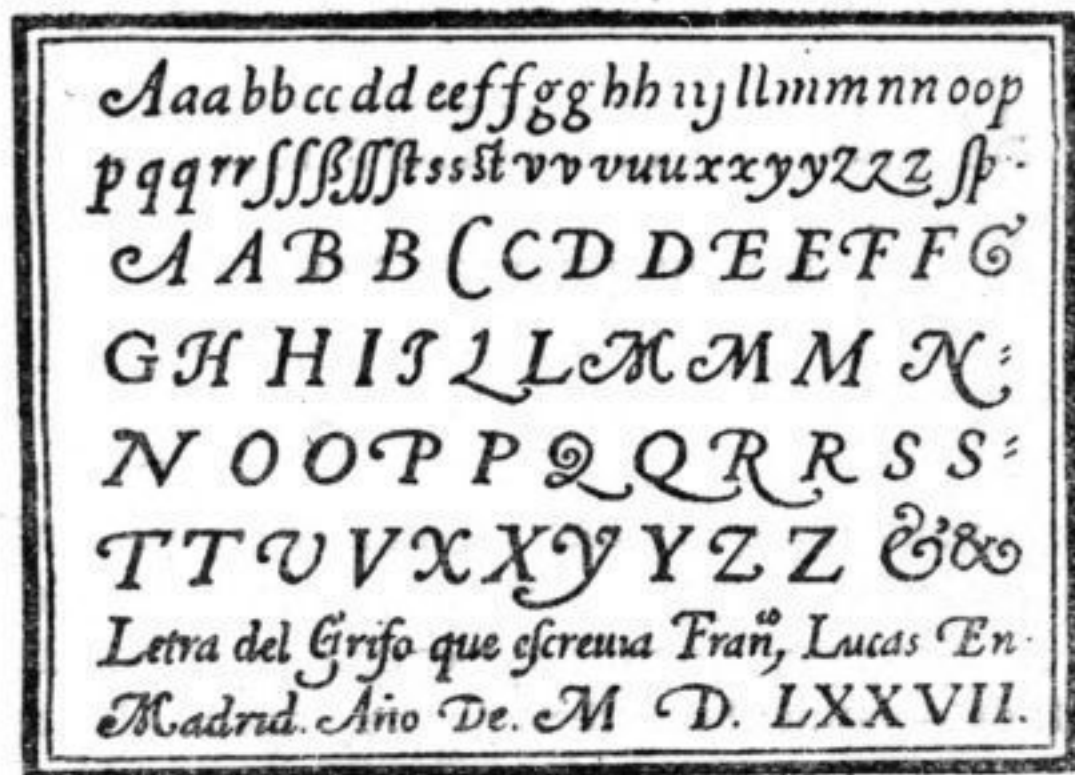 Aaabbccddeeffgghhııjllmmnnoop
pqqrrſſſßſſſtssstvvvuuxxyyzzz ſp
A A B B C C D D E E F F G
G H H I J L L M M M N
N O O P P Q Q R R S S
T T V V X X Y Y Z Z & &
Letra del Grifo que eſcreuıa Franᶜᵒ, Lucas En
Madrıd. Año De. M D. LXXVII.